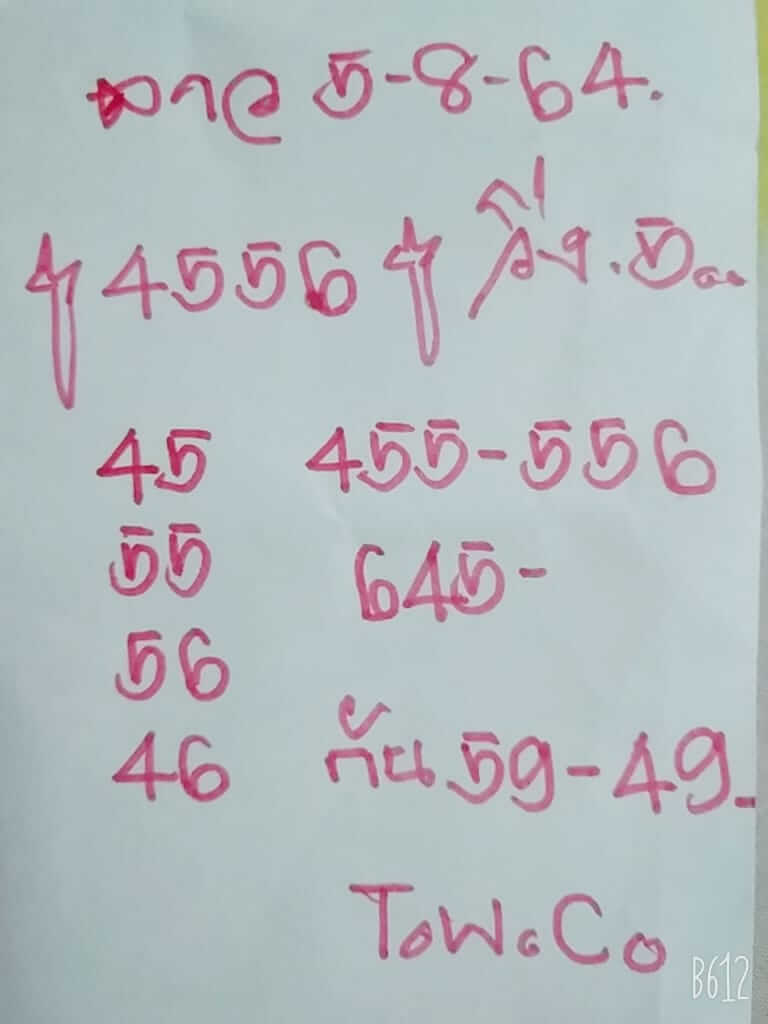 ลาว 5-8-64.
4556 วิ่ง.5..
45 455-556
55 645-
56
46 กัน 59-49-
ToWoCo
B612